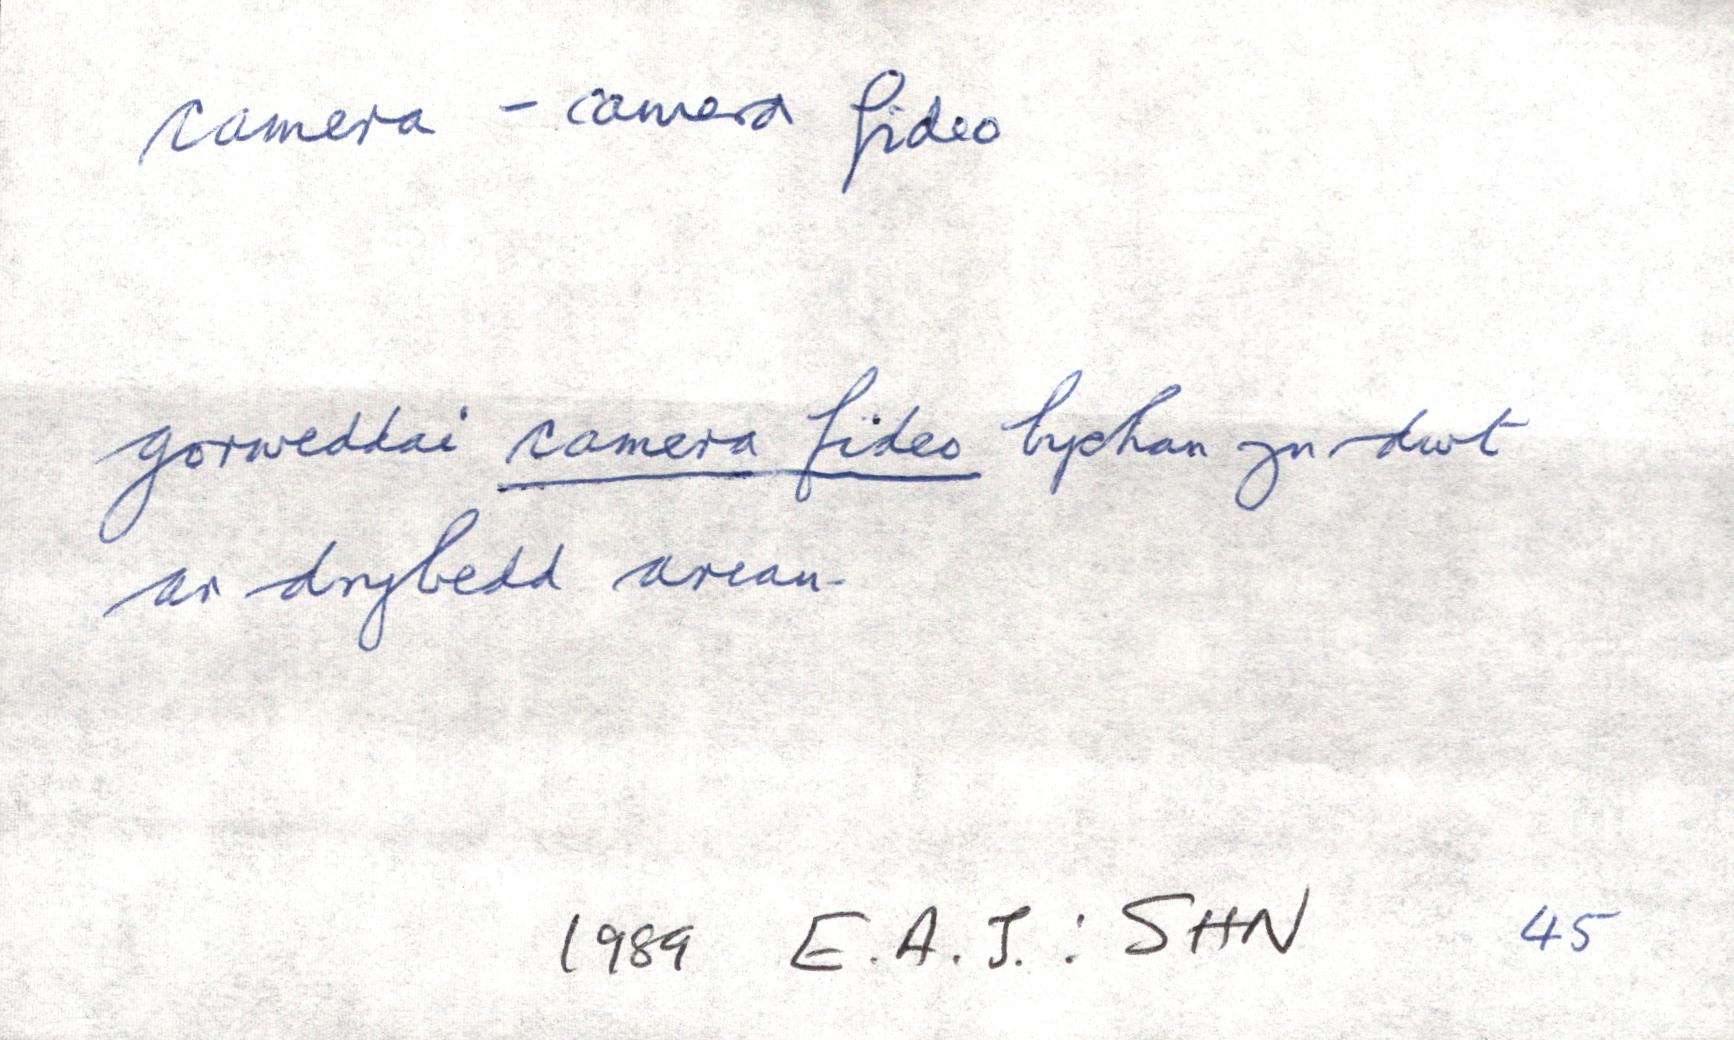 camera - camera fideo
gorweddai camera fideo bychan yn dwt
ar drybedd arian.
1989 E.A.J.: SHN 45